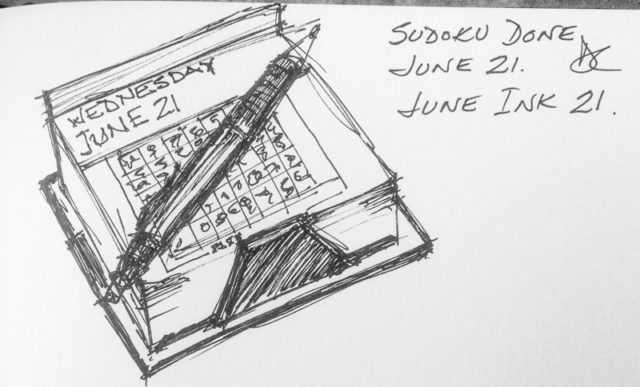 WEDNESDAY
JUNE 21
SUDOKU DONE
JUNE 21.
JUNE INK 21.